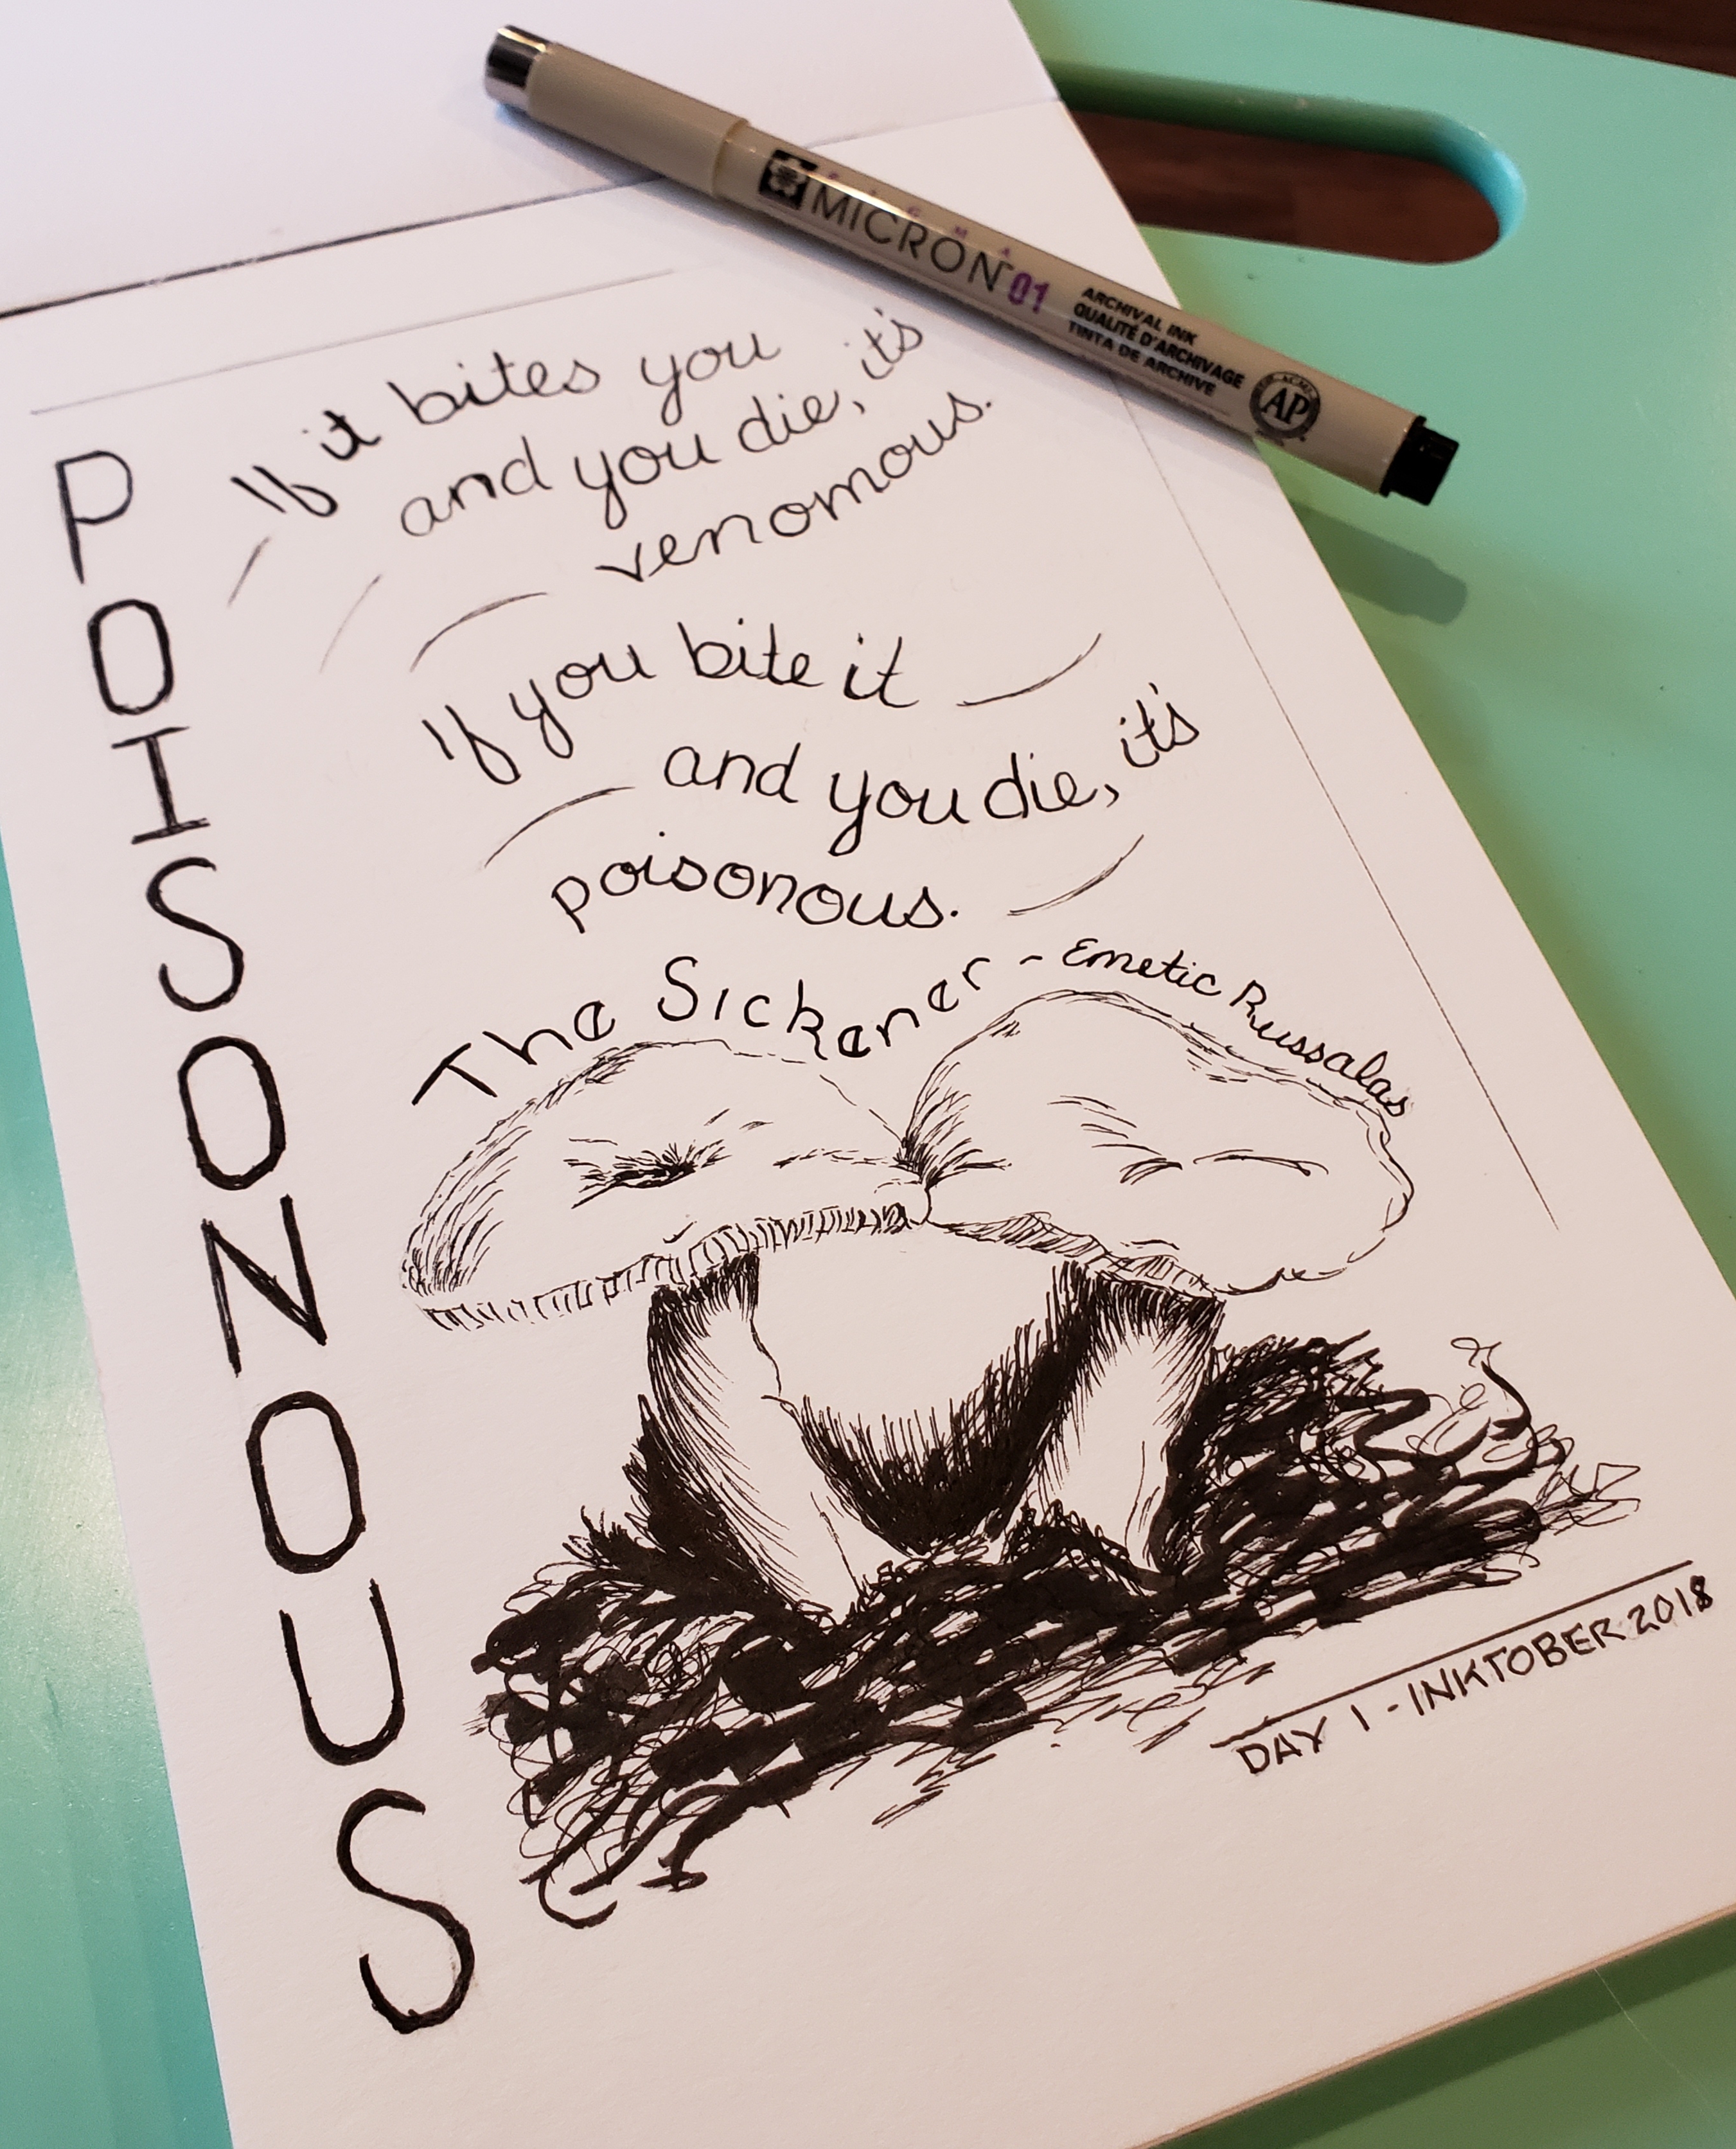 SIGMA
MICRON 01
ARCHIVAL INK
QUALITÉ D'ARCHIVAGE
TINTA DE ARCHIVE
AP
POISONOUS
If it bites you
and you die, it's
venomous.
If you bite it
and you die, it's
poisonous.
The Sickener - Emetic Russalas
DAY 1 - INKTOBER 2018